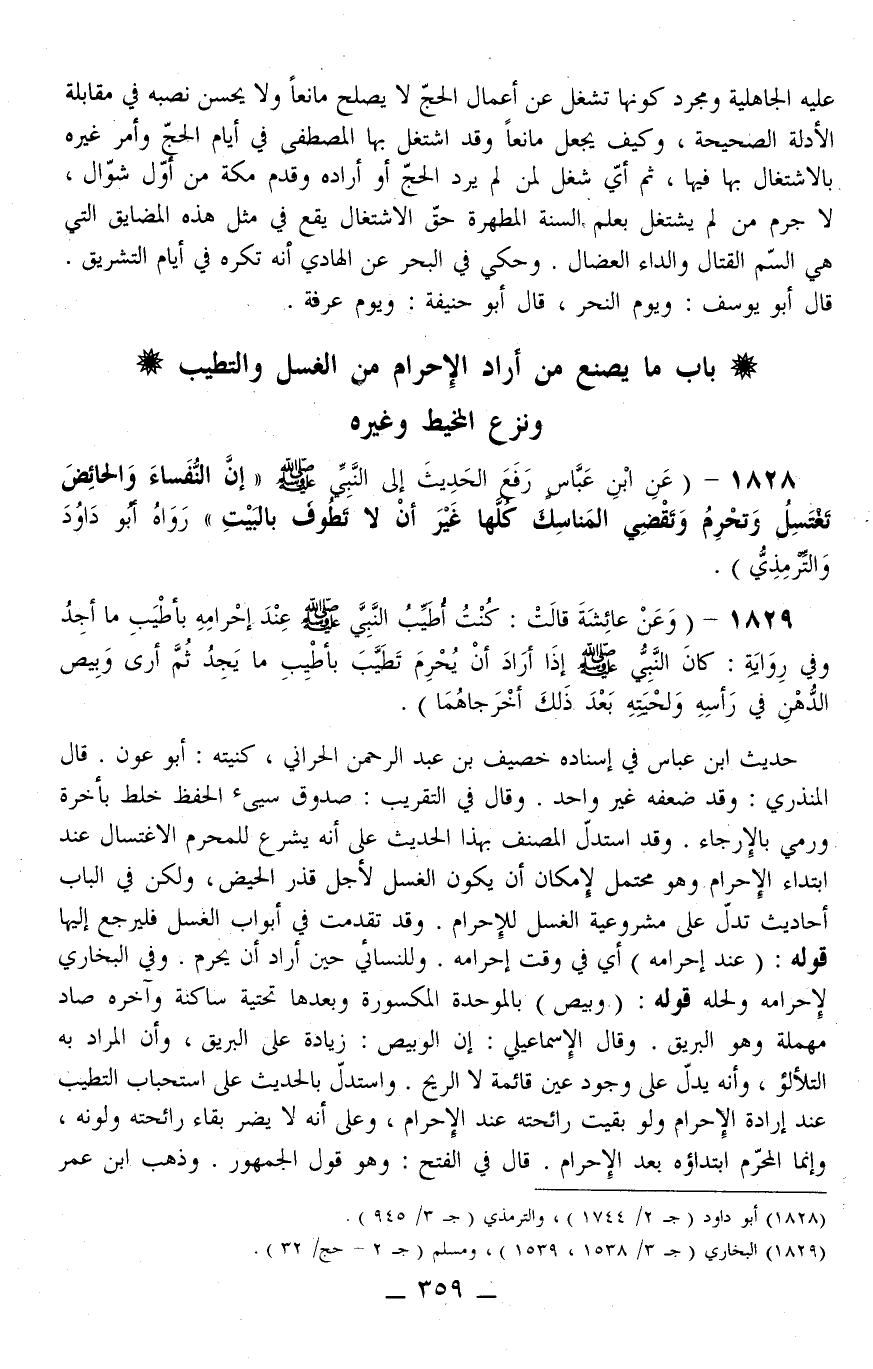 عليه الجاهلية ومجرد كونها تشغل عن أعمال الحجّ لا يصلح مانعاً ولا يحسن نصبه في مقابلة
الأدلة الصحيحة ، وكيف يجعل مانعاً وقد اشتغل بها المصطفى في أيام الحجّ وأمر غيره
بالاشتغال بها فيها ، ثم أيّ شغل لمن لم يرد الحجّ أو أراده وقدم مكة من أوّل شوّال ،
لا جرم من لم يشتغل بعلم السنة المطهرة حقّ الاشتغال يقع في مثل هذه المضايق التي
هي السّم القتال والداء العضال . وحكي في البحر عن الهادي أنه تكره في أيام التشريق .
قال أبو يوسف : ويوم النحر ، قال أبو حنيفة : ويوم عرفة .
باب ما يصنع من أراد الإحرام من الغسل والتطيب
ونزع المخيط وغيره
١٨٢٨ – ( عَنِ ابْنِ عَبَّاسٍ رَفَعَ الحَدِيثَ إلى النَّبِيِّ ﷺ « إنَّ النُّفَساءَ وَالحائِضَ
تَغْتَسِلُ وَتحْرِمُ وَتَقْضِي المَناسِكَ كُلَّها غَيْرَ أنْ لا تَطُوفَ بالبَيْتِ » رَوَاهُ أبُو دَاوُدَ
وَالتِّرْمِذِيُّ ) .
١٨٢٩ – ( وَعَنْ عائِشَةَ قالَتْ : كُنْتُ أُطَيِّبُ النَّبِيَّ ﷺ عِنْدَ إحْرامِهِ بأطْيَبِ ما أجِدُ
وفي رِوَايَةِ : كانَ النَّبِيُّ ﷺ إذَا أرَادَ أنْ يُحْرِمَ تَطَيَّبَ بأطْيبِ ما يَجِدُ ثُمَّ أرى وَبِيص
الدُّهْنِ في رَأسِهِ وَلحْيَتِهِ بَعْدَ ذَلكَ أخْرَجاهُمَا ) .
حديث ابن عباس في إسناده خصيف بن عبد الرحمن الحراني ، كنيته : أبو عون . قال
المنذري : وقد ضعفه غير واحد . وقال في التقريب : صدوق سيىء الحفظ خلط بأخرة
ورمي بالإرجاء . وقد استدلّ المصنف بهذا الحديث على أنه يشرع للمحرم الاغتسال عند
ابتداء الإحرام وهو محتمل لإمكان أن يكون الغسل لأجل قذر الحيض ، ولكن في الباب
أحاديث تدلّ على مشروعية الغسل للإحرام . وقد تقدمت في أبواب الغسل فليرجع إليها
قوله : ( عند إحرامه ) أي في وقت إحرامه . وللنسائي حين أراد أن يحرم . وفي البخاري
لإحرامه ولحله قوله : ( وبيص ) بالموحدة المكسورة وبعدها تحتية ساكنة وآخره صاد
مهملة وهو البريق . وقال الإسماعيلي : إن الوبيص : زيادة على البريق ، وأن المراد به
التلألؤ ، وأنه يدلّ على وجود عين قائمة لا الريح . واستدلّ بالحديث على استحباب التطيب
عند إرادة الإحرام ولو بقيت رائحته عند الإحرام ، وعلى أنه لا يضر بقاء رائحته ولونه ،
وإنما المحرّم ابتداؤه بعد الإحرام . قال في الفتح : وهو قول الجمهور . وذهب ابن عمر
(١٨٢٨) أبو داود ( جـ ٢/ ١٧٤٤ ) ، والترمذي ( جـ ٣/ ٩٤٥ ) .
(١٨٢٩) البخاري ( جـ ٣/ ١٥٣٨ ، ١٥٣٩ ) ، ومسلم ( جـ ٢ – حج/ ٣٢ ) .
_ ٣٥٩ _